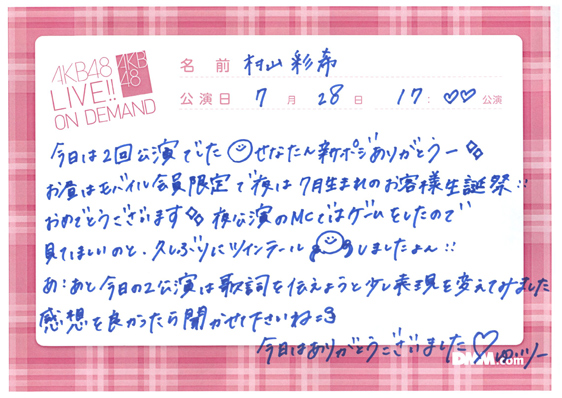 AKB48
LIVE!!
ON DEMAND
AKB
48
名前 村山彩希
公演日 7月28日 17:♡♡公演
今日は2回公演でした せなたん新ポジありがとうー
お昼はモバイル会員限定で夜は7月生まれのお客様生誕祭!!
おめでとうございます 夜公演のMCではゲームをしたので
見てほしいのと、久しぶりにツインテール しましたよん!!
あ:あと今日の2公演は歌詞を伝えようと少し表現を変えてみました
感想を良かったら聞かせて下さいね
今日はありがとうございました♡
DMM.com